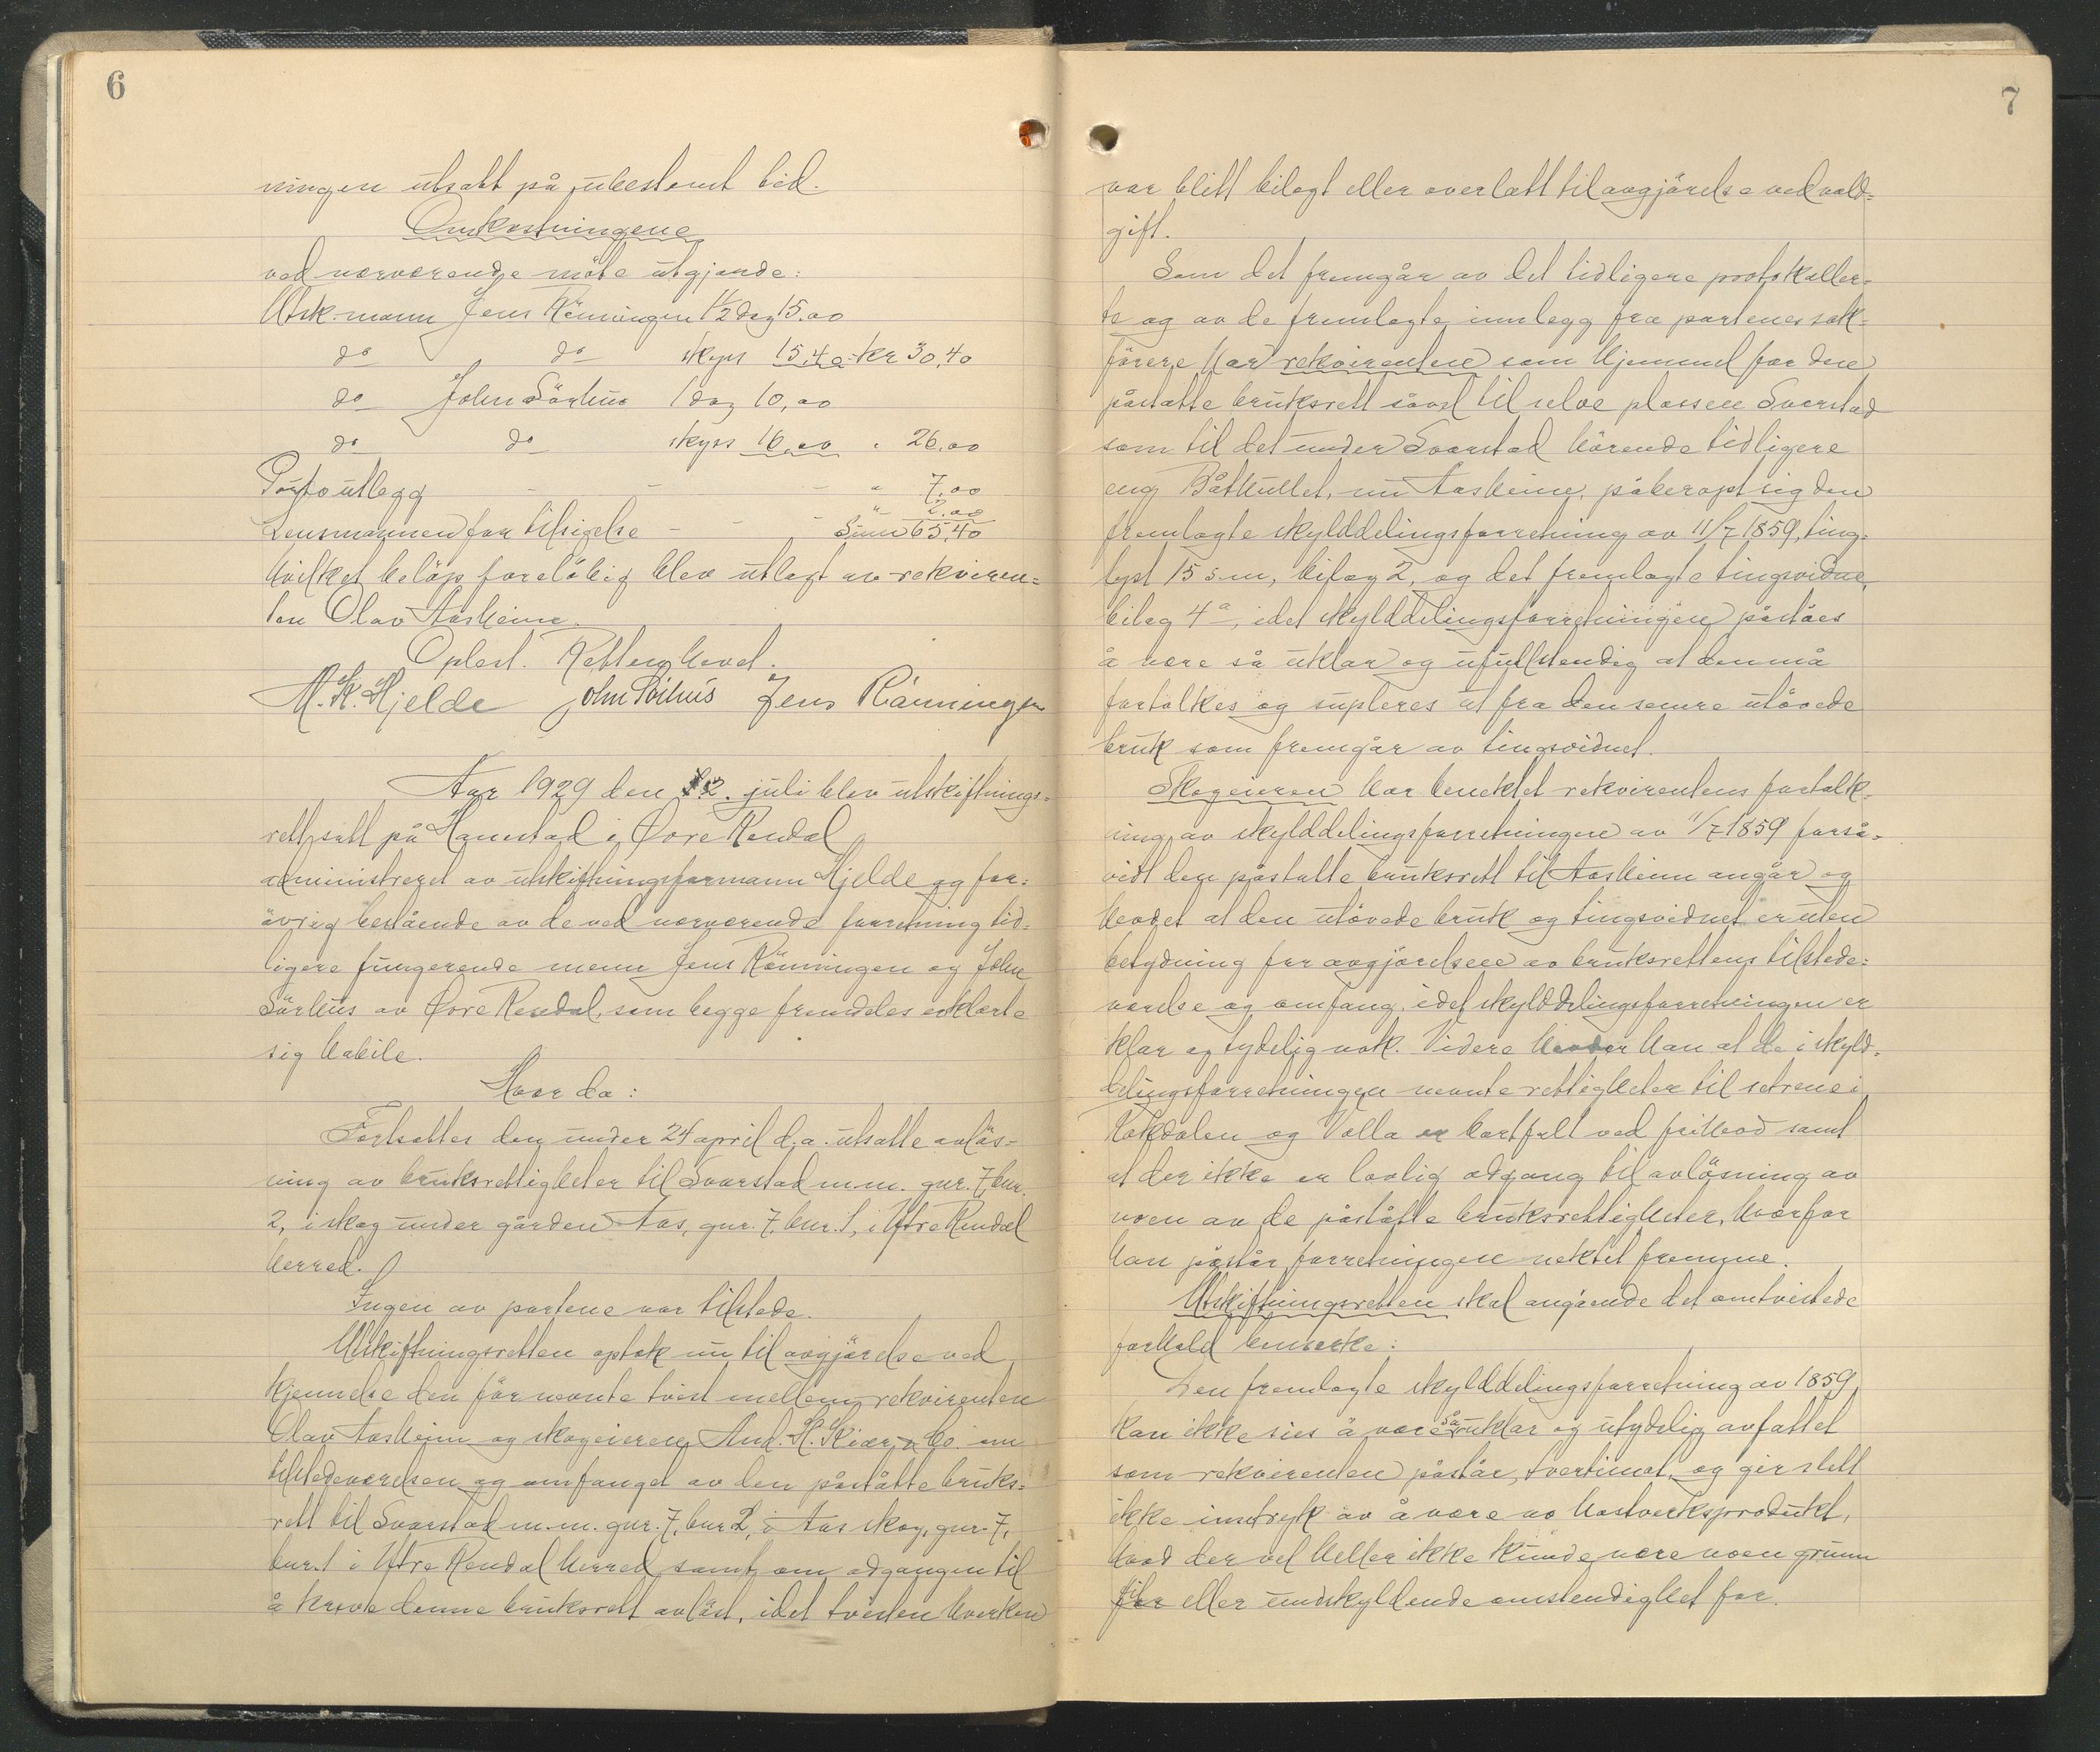 6
ningen utsatt på ubestemt tid.
Omkostningene
ved nærværende møte utgjorde:
Utsk.mann Jens Rönningen 1 1/2 dag 15.00
do do skyss 15,40 kr 30,40
do John Sörhus 1 dag 10,00
do do skyss 16,00 " 26,00
Porto utlegg - - - " 7,00
Lensmannen for tilsigelse - - - " 2,00
Sum 65,40
hvilket beløp foreløbig blev utlagt av rekviren-
ten Olav Aasheim.
Oplest. Retten hevet.
M. K. Hjelde John Sörhus Jens Rönningen
Aar 1929 den 12. juli blev utskiftnings-
rett satt på Hanestad i Øvre Rendal
administreret av utskiftningsformann Hjelde og for-
övrig bestående av de ved nærværende forretning tid-
ligere fungerende menn Jens Rönningen og John
Sörhus av Øvre Rendal, som begge fremdeles erklærte
sig habile.
Hvor da:
Fortsattes den under 24 april d.a. utsatte avläs-
ning av bruksrettigheter til Svarstad m.m. gnr. 7, bnr.
2, i skog under gården Aas, gnr. 7, bnr. 1, i Ytre Rendal
herred.
Ingen av partene var tilstede.
Utskiftningsretten optok nu til avgjörelse ved
kjennelse den för nevnte tvist mellem rekvirenten
Olav Aasheim og skogeieren And. H. Kiær & Co. om
tilstedeværelsen og omfanget av den påståtte bruks-
rett til Svarstad m.m. gnr. 7, bnr 2, i Aas skog, gnr. 7,
bnr. 1 i Ytre Rendal herred samt om adgangen til
å kreve denne bruksrett avläst, idet tvisten hverken
7
var blitt bilagt eller overlatt til avgjörelse ved vold-
gift.
Som det fremgår av det tidligere protokoller-
te og av de fremlagte innlegg fra partenes sak-
förere har rekvirenten som hjemmel for den
påståtte bruksrett såvel til selve plassen Svarstad
som til det under Svarstad hörende tidligere
eng Båthullet, nu Aasheim, påberopt sig den
fremlagte skylddelingsforretning av 11/7 1859, ting-
lyst 15 s.m., bilag 2, og det fremlagte tingsvidne,
bilag 4a, idet skylddelingsforretningen påståes
å være så uklar og ufullstendig at den må
fortolkes og supleres ut fra den senere utövede
bruk som fremgår av tingsvidnet.
Skogeieren har benektet rekvirentens fortolk-
ning av skylddelingsforretningen av 11/7 1859 forså-
vidt den påståtte bruksrett til Aasheim angår og
hevdet at den utövede bruk og tingsvidnet er uten
betydning for avgjörelsen av bruksrettens tilstede-
værelse og omfang, idet skylddelingsforretningen er
klar og tydelig nok. Videre hevder han at de i skyld-
delingsforretningen nevnte rettigheter til setrene i
Kokdalen og Valla er bortfalt ved frihevd samt
at der ikke er lovlig adgang til avlösning av
noen av de påståtte bruksrettigheter, hvorfor
han påstår forretningen nektet fremme.
Utskiftningsretten skal angående det omtvistede
forhold bemerke:
Den fremlagte skylddelingsforretning av 1859
kan ikke sies å være så uklar og utydelig avfattet
som rekvirenten påstår, tvertimot, og gir slett
ikke inntryk av å være no hastverksprodukt,
hvad der vel heller ikke kunde være noen grunn
til eller undskyldende omstendighet for.